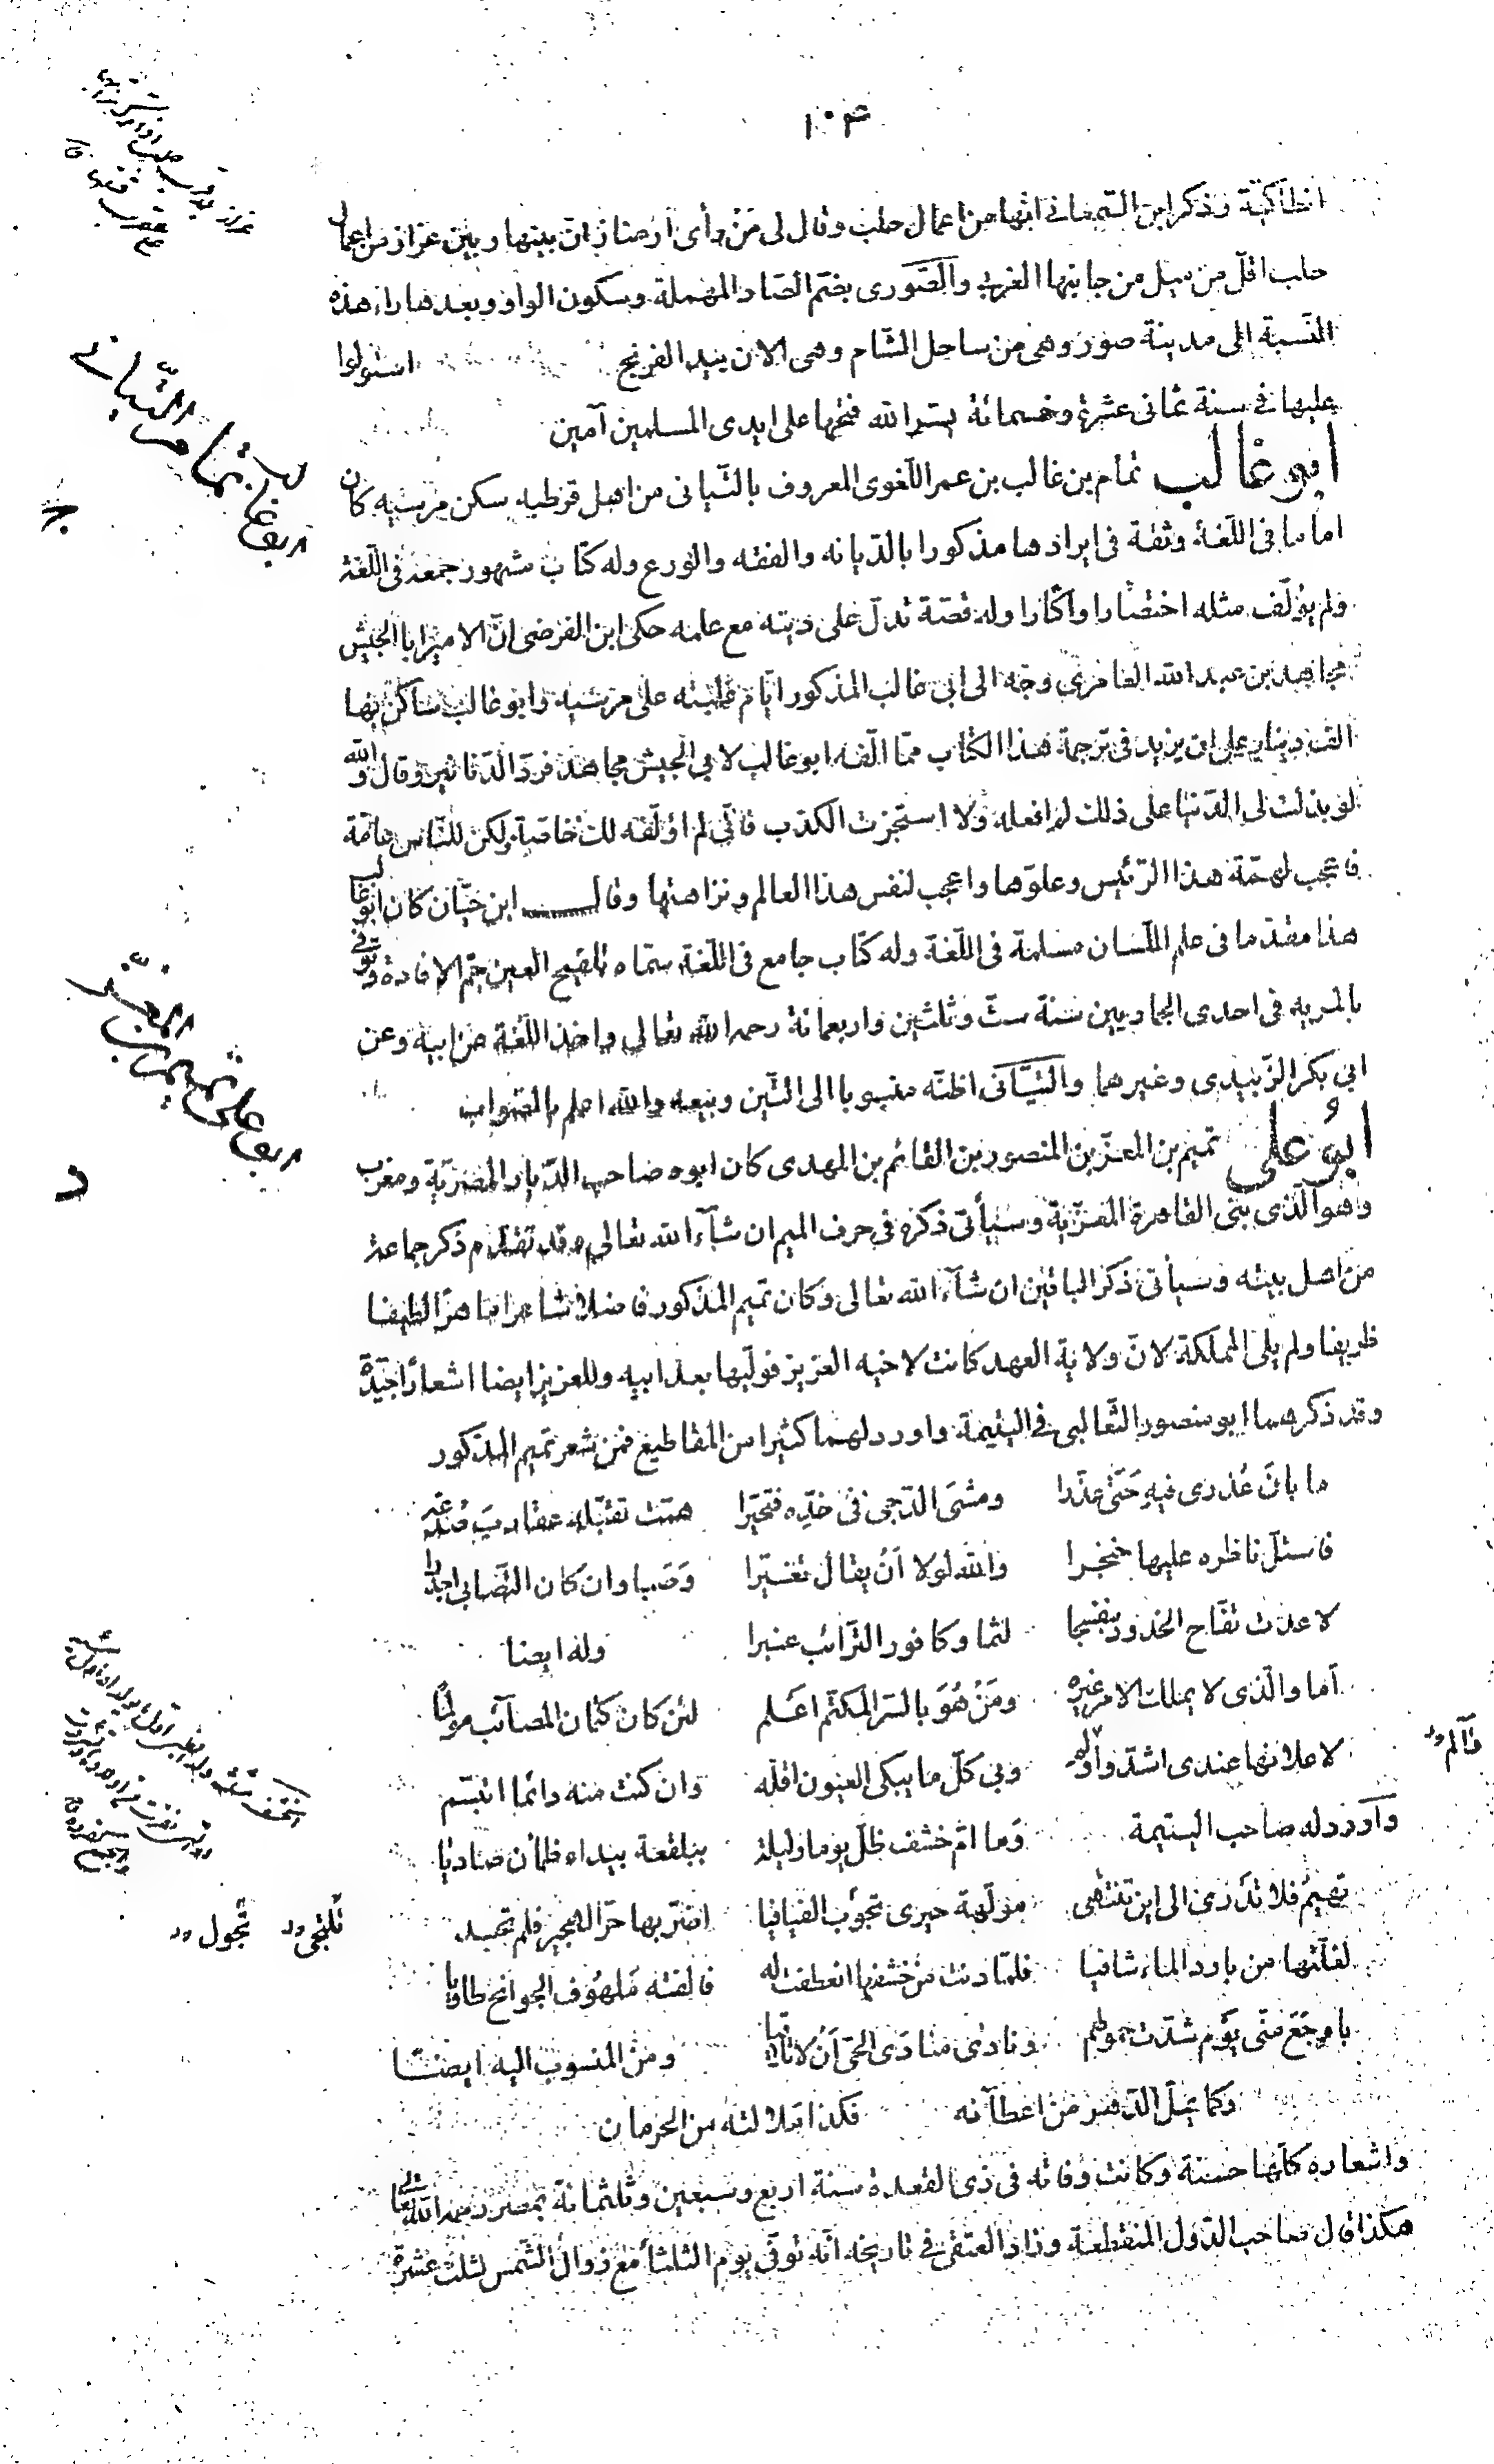 ١٠٣
انطاكيّة وذكر ابن السّمعانى انّها من اعمال حلب وقال لى مَنْ رأى أرمناز انّ بينها وبين عزاز من اعمال
حلب اقلّ من ميل من جانبها الغربى والصّورى بضمّ الصّاد المهملة وسكون الواو وبعدها راء هذه
النّسبة الى مدينة صور وهى من ساحل الشّام وهى الان بيد الفرنج استولوا
عليها فى سنة ثمانى عشرة وخمسمائة يسّر الله فتحها على ايدى المسلمين آمين
ابو غالب تمام بن غالب بن عمر اللّغوى المعروف بالتّيانى من اهل قرطبه سكن مرسيه كان
اماما فى اللّغة وثقة فى ايرادها مذكورا بالدّيانه والفقه والورع وله كتاب مشهور جمعه فى اللّغة
ولم يؤلّف مثله اختصارا واكثارا وله قصّة تدلّ على دينه مع علمه حكى ابن الفرضى انّ الامير ابا الجيش
مجاهد بن عبد الله العامرى وجّه الى ابى غالب المذكور ايّام غلبته على مرسيه وابو غالب ساكن بها
الف دينار على ان يزيد فى ترجمة هذا الكتاب ممّا الّفه ابو غالب لابى الجيش مجاهد فردّ الدّنانير وقال والله
لو بذلت لى الدّنيا على ذلك لم افعله ولا استجزت الكذب فانّى لم اؤلّفه لك خاصّة ولكن للنّاس عامّة
فاعجب لهمّة هذا الرّئيس وعلوّها واعجب لنفس هذا العالم ونزاهتها وقال ابن حيّان كان ابو غالب
هذا مقدّما فى علم اللّسان مسلمة فى اللّغة وله كتاب جامع فى اللّغة سمّاه تلقيح العين جمّ الافادة وتوفى
بالمريه فى احدى الجماديين سنة ستّ وثلثين واربعمائة رحمه الله تعالى واخذ اللّغة عن ابيه وعن
ابى بكر الزّبيدى وغيرهما والتّيّانى اظنّه منسوبا الى التّين وبيعه والله اعلم بالصّواب
ابُو على تميم بن المعزّ بن المنصور بن القائم بن المهدى كان ابوه صاحب الدّيار المصريّة ومغرب
وهو الّذى بنى القاهرة المعزّية وسيأتى ذكره فى حرف الميم ان شآء الله تعالى وقد تقدّم ذكر جماعة
من اهل بيته وسيأتى ذكر الباقين ان شآء الله تعالى وكان تميم المذكور فاضلا شاعرا ماهرا لطيفا
ظريفا ولم يلى المملكة لانّ ولاية العهد كانت لاخيه العزيز فوليها بعد ابيه وللعزيز ايضا اشعارا جيّدة
وقد ذكرهما ابو منصور الثّعالبى فى اليتيمة واورد لهما كثيرا من المقاطيع فمن شعر تميم المذكور
ما بانَ عُذرى فيهِ حَتّى عذّرا ومشَى الدّجى فى خدّه فتحيّرا همّت تقبّله عقاربَ صُدغه
فاستلّ ناظره عليها خنجرا والله لولا أنْ يقال تغيّرا وَصَبا وان كان التّصابى اجدرا
لاعدت تفّاح الخدود بنفسجا لثما وكافور التّرائب عنبرا وله ايضا
أما والّذى لا يملك الامر غيره ومَنْ هُوَ بالسّر المكتّم اعلم لئن كان كتمان المصآئب مولما
لاعلانها عندى اشدّ وآلم وبى كلّ ما يبكى العيون اقلّه وان كنت منه دائما اتبسّم
وآورد له صاحب اليتيمة وَما امّ خشف ظلّ يوما وليلة ببلقعة بيداء ظمآن صاديا
تهيمُ فلا تدرى الى اين تنتهى مولّهة حيرى تجوب الفيافيا اضرّ بها حرّ الهجير فلم تجد
لغلّتها من بارد الماء شافيا فلمّا دنت من خشفها انعطفت له فالفته مَلهُوف الجوانح طاويا
باوجَعَ منّى يَوم شدّت حمولهم ونادى منادى الحىّ أنْ لا تلاقيا ومن المنسوب اليه ايضـــا
وكما يملّ الدّهر من اعطآئه فكذا ملالته من الحرمان
واشعاره كلّها حسنة وكانت وفاته فى ذى القعدة سنة اربع وسبعين وثلثمائة بمصر رحمه الله تعالى
هكذا قال صاحب الدّول المنقطعة وزاد العتقى فى تاريخه انّه توفّى يوم الثلثآ مع زوال الشّمس لثلث عشرة
ابو غالب تمام التيّانى
ابو على تميم بن المعزّ
وآلم
تلتجى تجول